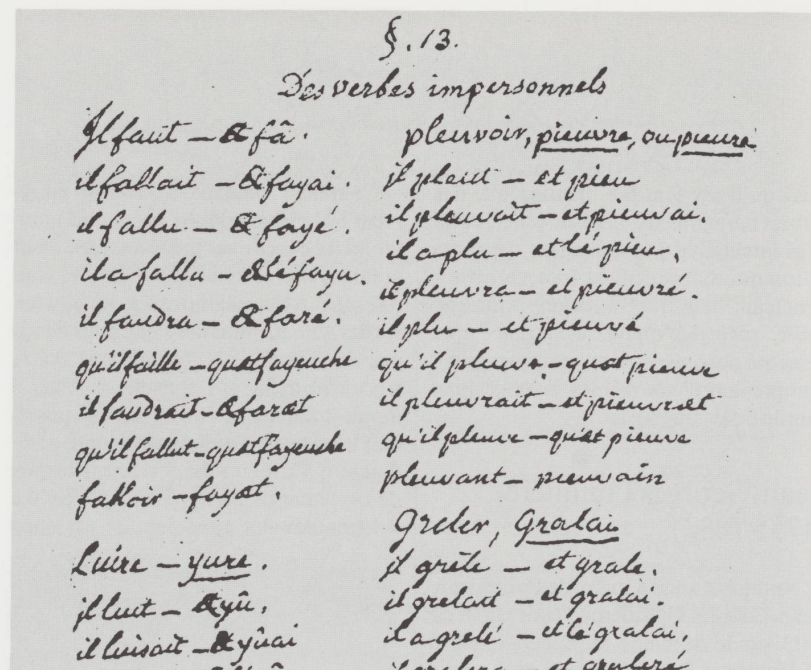 §. 13.
Des verbes impersonnels
Il faut – et fâ.
il fallait – et fayai.
il fallu – et fayé.
il a fallu – et lé fayu.
il faudra – et faré.
qu'il faille – quet fayeuche
il faudrait – et faret
qu'il fallut – quet fayeuche
falloir – fayet.
Luire – yure.
il luit – et yû.
il luisait – et yûai
pleuvoir, pieuvre, ou pieure
il pleut – et pieu
il pleuvait – et pieuvai.
il a plu – et lé pieu.
il pleuvra – et pieuvré.
il plu – et pieuvé
qu'il pleuve – quet pieuve
il pleuvrait – et pieuvret
qu'il pleuve – qu'et pieuve
pleuvant – pieuvain
Greler, Gralai
il grêle – et grale.
il grelait – et gralai.
il a grelé – et lé gralai.